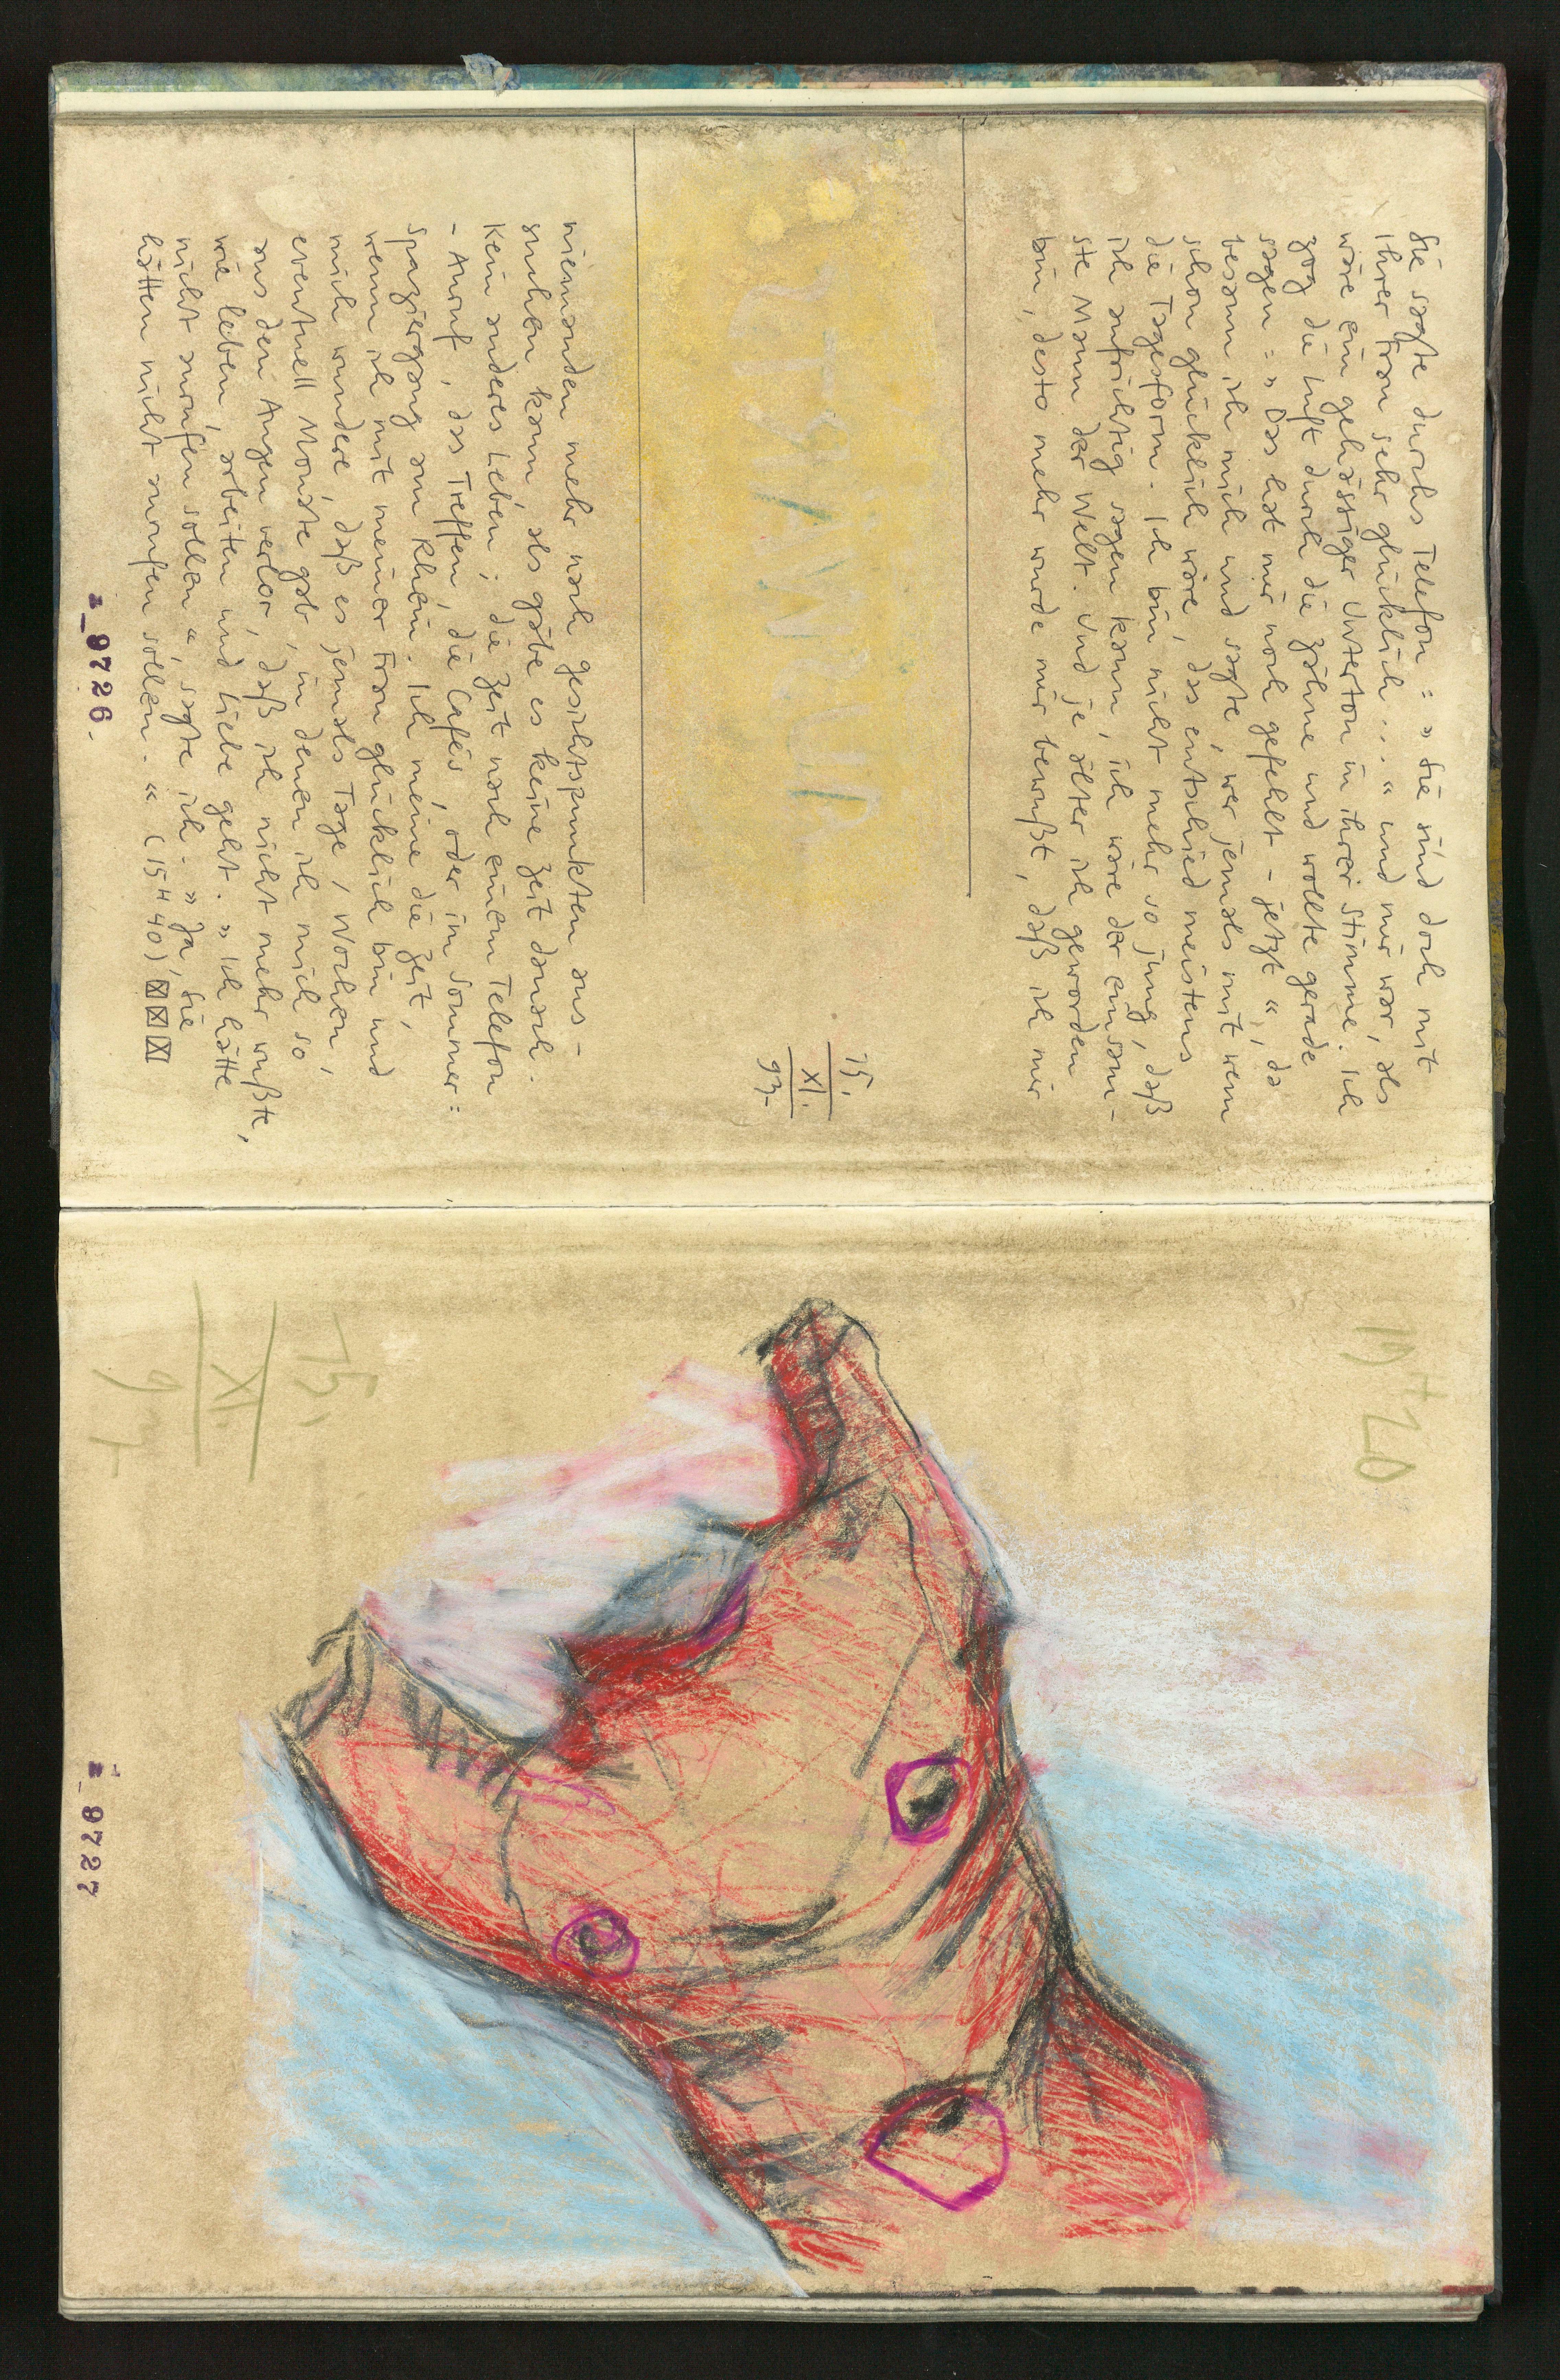 Sie sagte durchs Telefon : » Sie sind doch mit
Ihrer Frau sehr glücklich ... « und mir war, als
wäre ein gehässiger Unterton in ihrer Stimme. Ich
zog die Luft durch die Zähne und wollte gerade
sagen : » Das hat mir noch gefehlt - jetzt «, da
besann ich mich und sagte, wer jemals mit wem
schon glücklich wäre, das entschied meistens
die Tagesform. Ich bin nicht mehr so jung, daß
ich aufrichtig sagen kann, ich wäre der einsam-
ste Mann der Welt. Und je älter ich geworden
bin, desto mehr wurde mir bewußt, daß ich mir
15.
XI.
93-
niemanden mehr nach gesichtspunkten aus-
suchen kann, als gäbe es keine Zeit danach.
Kein anderes Leben; die Zeit nach einem Telefon
- Anruf, das Treffen, die Cafés, oder im Sommer:
Spaziergang am Rhein. Ich meine die Zeit,
wenn ich mit meiner Frau glücklich bin und
mich wundere, daß es jemals Tage, Wochen,
eventuell Monate gab, in denen ich mich so
aus den Augen verlor, daß ich nicht mehr wußte,
wie leben, arbeiten und Liebe geht. » Ich hätte
nicht anrufen sollen «, sagte ich. » Ja, Sie
hätten nicht anrufen sollen. « (15 H 40)
z_9726.
19 H 20
15.
XI.
93-
z_9727